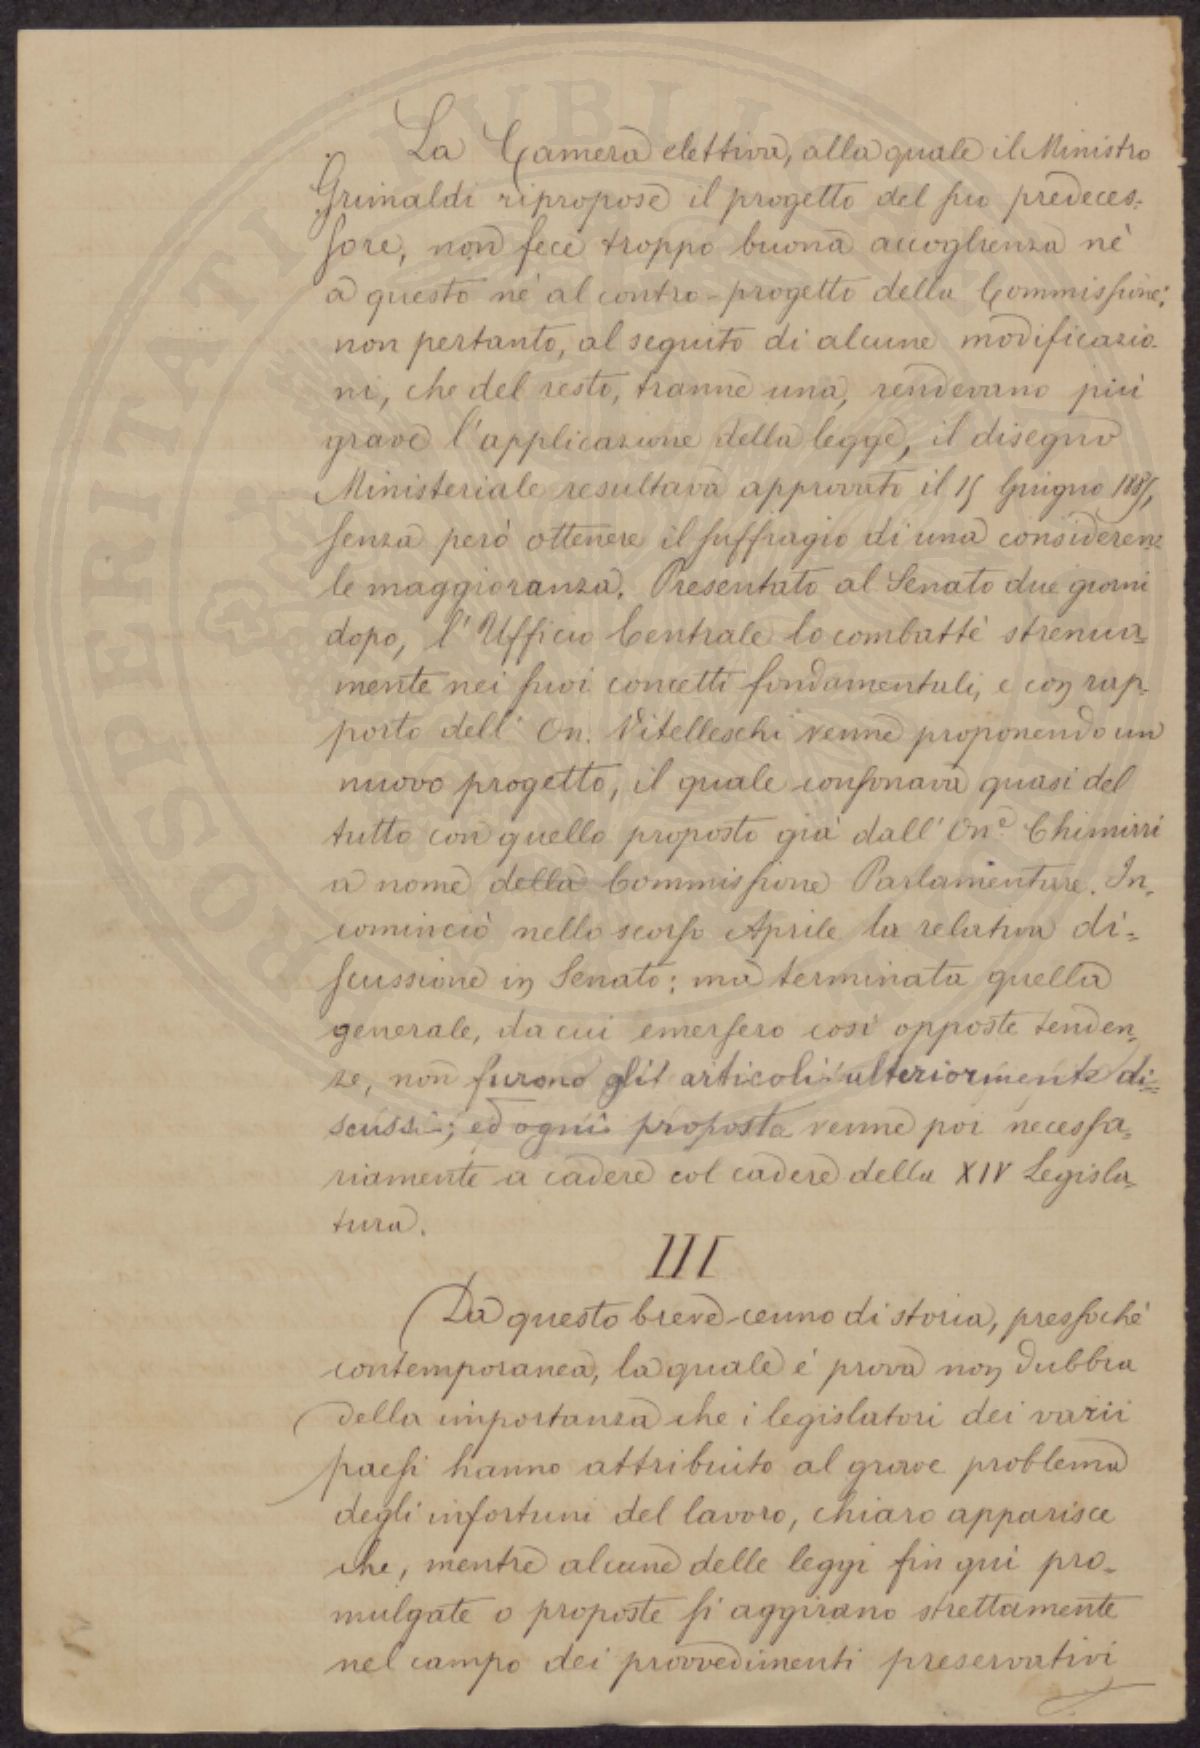 La Camera elettiva, alla quale il Ministro
Grimaldi ripropose il progetto del suo predeces-
sore, non fece troppo buona accoglienza nè
a questo nè al contro-progetto della Commissione;
non pertanto, al seguito di alcune modificazio-
ni, che del resto, tranne una, rendevano più
grave l'applicazione della legge, il disegno
Ministeriale resultava approvato il 15 Giugno 1885,
senza però ottenere il suffragio di una consideren-
le maggioranza. Presentato al Senato due giorni
dopo, l'Ufficio Centrale lo combattè strenua-
mente nei suoi concetti fondamentali, e con rap-
porto dell' On. Vitelleschi venne proponendo un
nuovo progetto, il quale consonava quasi del
tutto con quello proposto già dall' On.e Chimirri
a nome della Commissione Parlamentare. In-
cominciò nello scorso Aprile la relativa di-
scussione in Senato; ma terminata quella
generale, da cui emersero così opposte tenden-
ze, non furono gli articoli ulteriormente di-
scussi; ed ogni proposta venne poi necessa-
riamente a cadere col cadere della XIV Legisla-
tura.
III
Da questo breve cenno di storia, pressochè
contemporanea, la quale è prova non dubbia
della importanza che i legislatori dei varii
paesi hanno attribuito al grave problema
degli infortuni del lavoro, chiaro apparisce
che, mentre alcune delle leggi fin qui pro-
mulgate o proposte si aggirano strettamente
nel campo dei provvedimenti preservativi
PROSPERITATI PUBLICAE